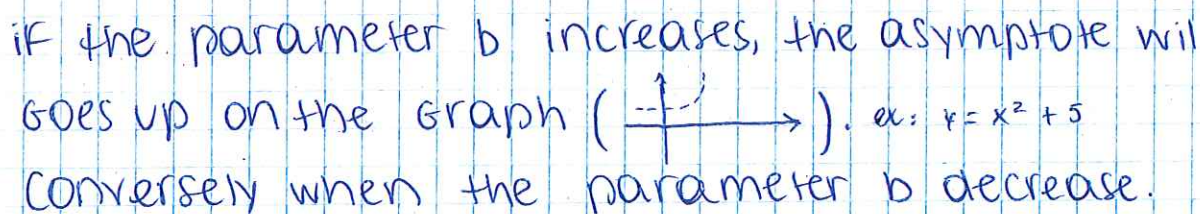 if the parameter b increases, the asymptote wil
Goes up on the Graph ( ). ex: y = x² + 5
conversely when the parameter b decrease.